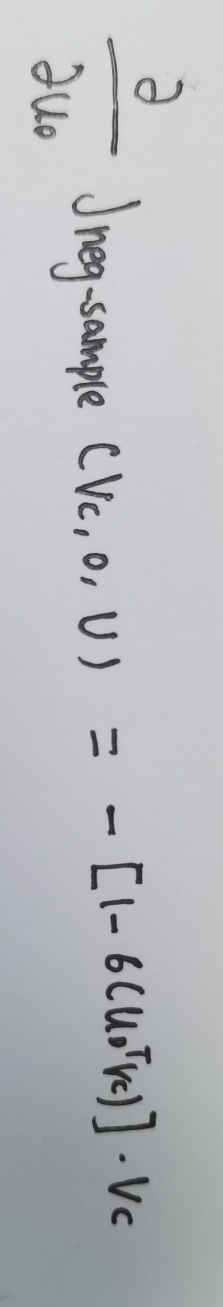 ∂/∂u₀ Jneg-sample (Vc, o, U) = - [1 - σ(u₀ᵀVc)] · Vc